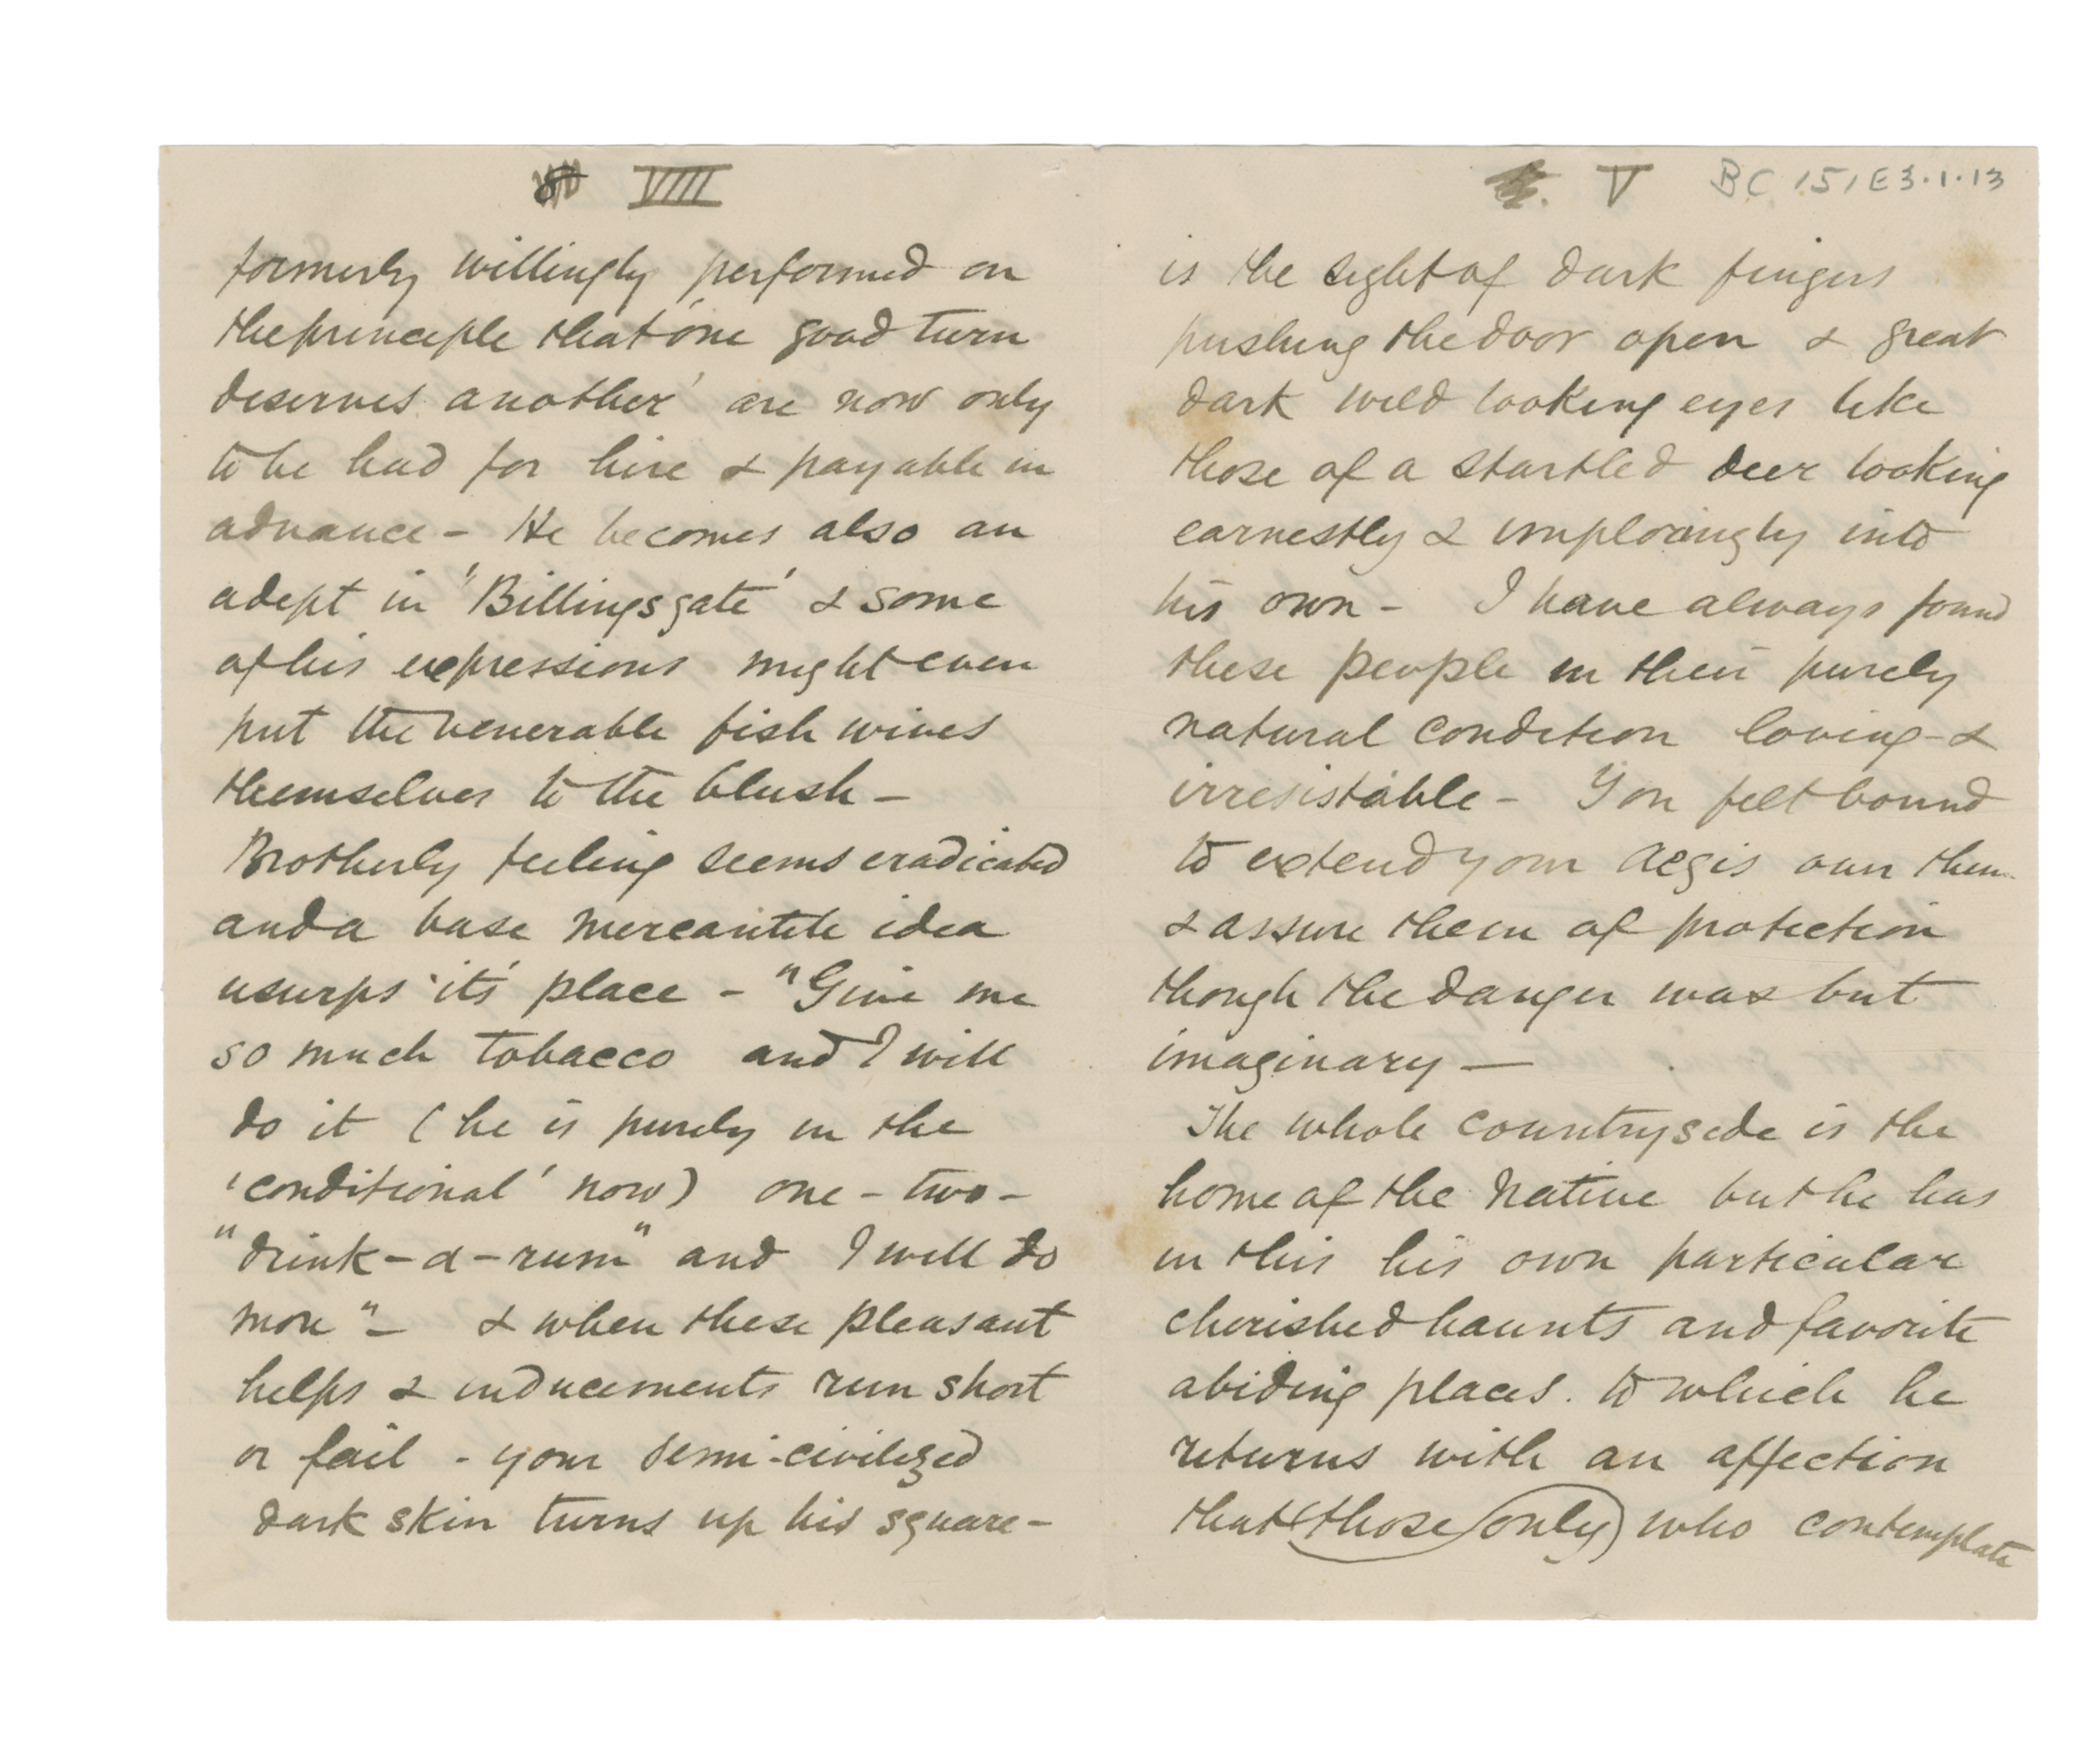 VIII
formerly willingly performed on
the principle that 'one good turn
deserves another' are now only
to be had for hire & payable in
advance - He becomes also an
adept in 'Billingsgate' & some
of his expressions might even
put the venerable fish wives
themselves to the blush -
Brotherly feeling seems eradicated
and a base mercantile idea
usurps its' place - "Give me
so much tobacco and I will
do it (he is purely in the
'conditional' now) one - two -
"drink-a-rum" and I will do
more" - & when these pleasant
helps & inducements run short
or fail - your semi-civilized
dark skin turns up his square-
V BC 151 E3.1.13
is the sight of dark fingers
pushing the door open & great
dark wild looking eyes like
those of a startled deer looking
earnestly & imploringly into
his own - I have always found
these people in their purely
natural condition loving - &
irresistable - You felt bound
to extend your aegis over them
& assure them of protection
though the danger was but
imaginary -
The whole countryside is the
home of the Native but he has
in this his own particular
cherished haunts and favorite
abiding places. to which he
returns with an affection
that (those only) who contemplate